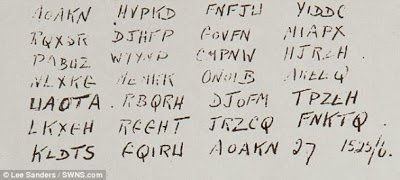 AOAKN HVPKD FNFJU YIDDC
RQXSR DJHFP GOVFN MIAPX
PABUZ WYYNP CMPNW HJRZH
NLXKG MEMKK ONOIB AKEEQ
UAOTA RBQRH DJOFM TPZEH
LKXGH RGGHT JRZCQ FNKTQ
KLDTS GQIRU AOAKN 27 1525/6.
© Lee Sanders / SWNS.com